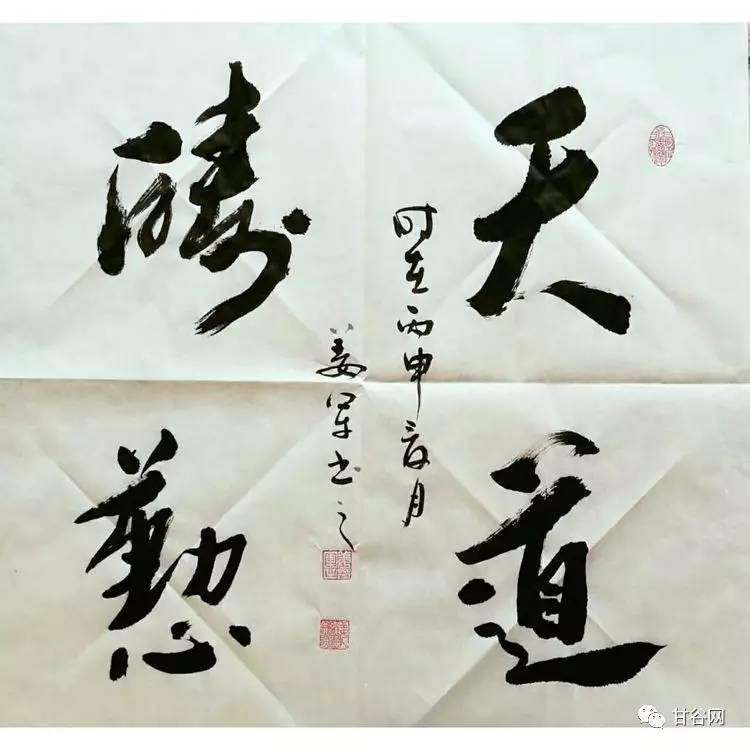 天道
醻懃
时在丙申夏月
姜军书之
甘谷网